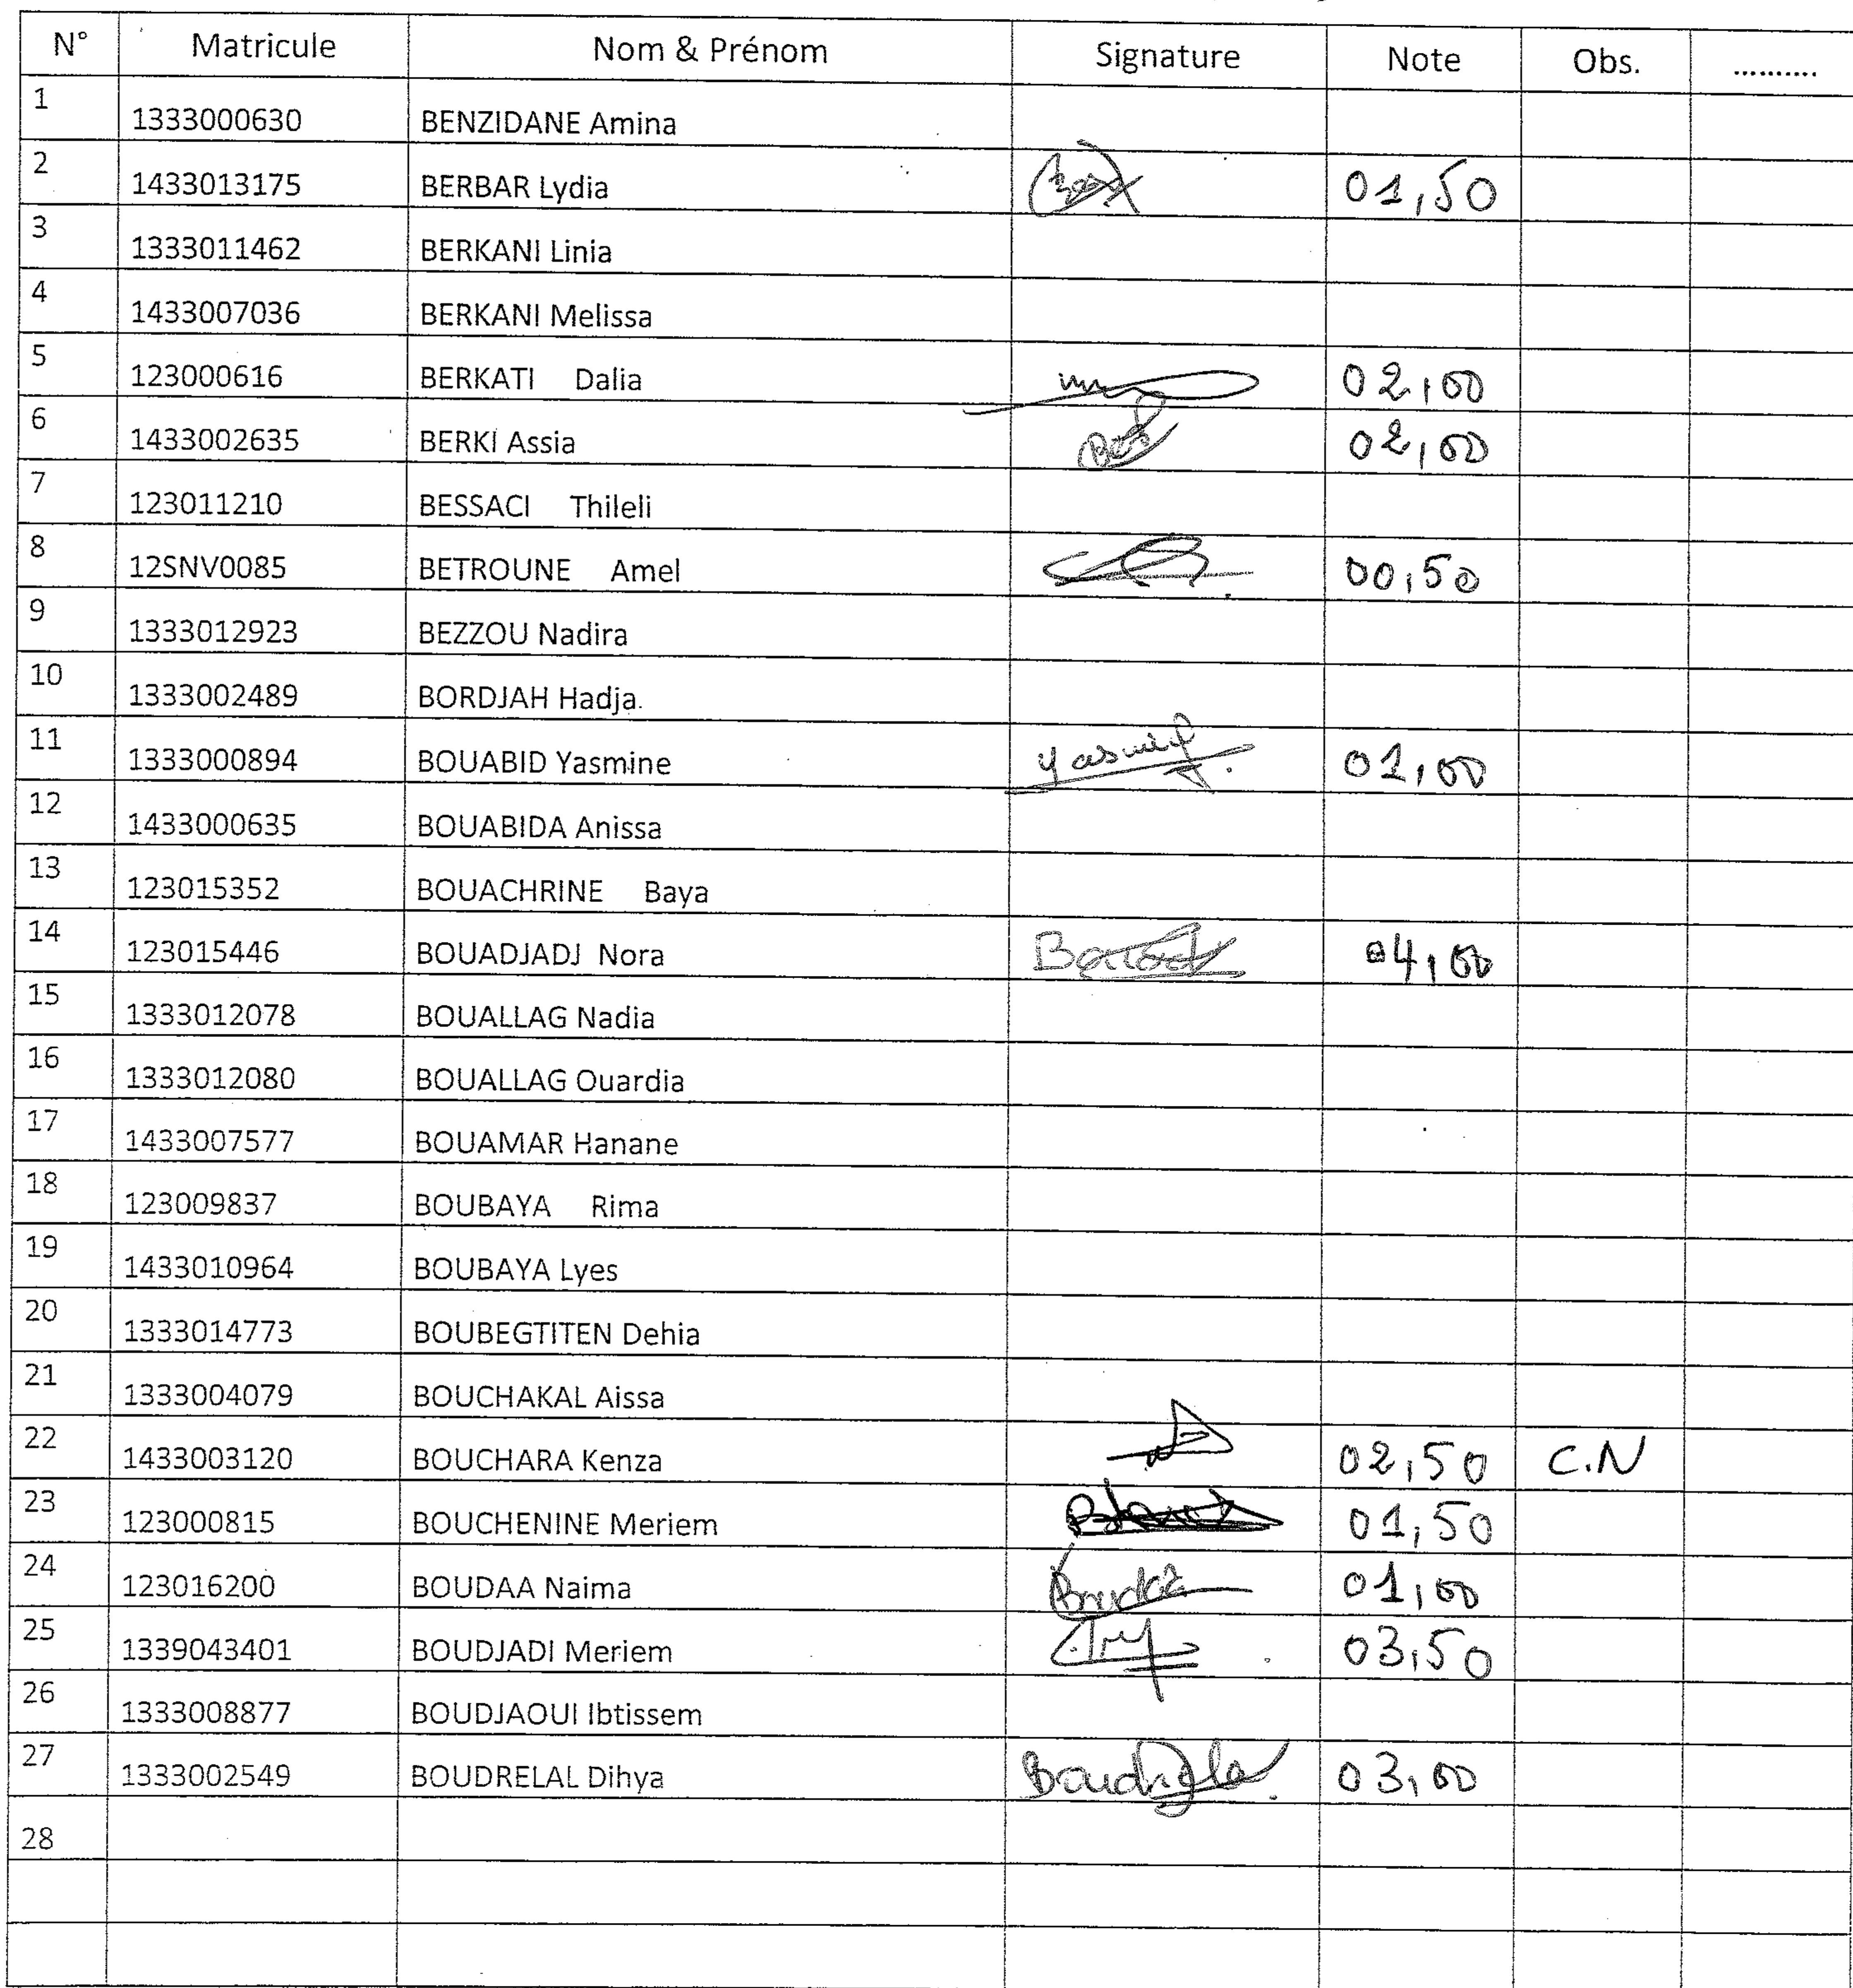 N° Matricule Nom & Prénom Signature Note Obs. ..........
1 1333000630 BENZIDANE Amina
2 1433013175 BERBAR Lydia 01,50
3 1333011462 BERKANI Linia
4 1433007036 BERKANI Melissa
5 123000616 BERKATI Dalia 02,00
6 1433002635 BERKI Assia 02,00
7 123011210 BESSACI Thileli
8 12SNV0085 BETROUNE Amel 00,50
9 1333012923 BEZZOU Nadira
10 1333002489 BORDJAH Hadja.
11 1333000894 BOUABID Yasmine 01,00
12 1433000635 BOUABIDA Anissa
13 123015352 BOUACHRINE Baya
14 123015446 BOUADJADJ Nora 04,00
15 1333012078 BOUALLAG Nadia
16 1333012080 BOUALLAG Ouardia
17 1433007577 BOUAMAR Hanane
18 123009837 BOUBAYA Rima
19 1433010964 BOUBAYA Lyes
20 1333014773 BOUBEGTITEN Dehia
21 1333004079 BOUCHAKAL Aissa
22 1433003120 BOUCHARA Kenza 02,50 C.N
23 123000815 BOUCHENINE Meriem 01,50
24 123016200 BOUDAA Naima 01,00
25 1339043401 BOUDJADI Meriem 03,50
26 1333008877 BOUDJAOUI Ibtissem
27 1333002549 BOUDRELAL Dihya 03,00
28